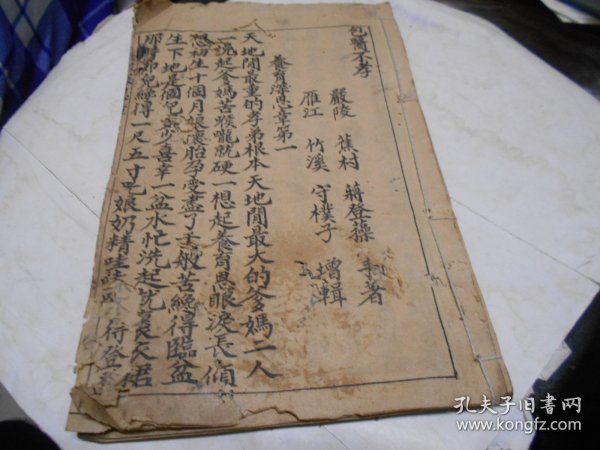 包醫不孝
嚴陵 蕉村 蔣登藻 著
雁江 竹溪 守樸子 增輯
養育深恩章第一
天地間最重的孝弟根本天地間最大的爹媽二人
一說起爹媽苦喉嚨就硬一想起養育恩眼淚長傾
想初生十個月娘懷胎孕受盡了千般苦纔得臨盆
生下地是個兒喜幸一盆水忙洗起
那時節兒纔得一尺五寸吃娘奶精
孔夫子旧书网
www.kongfz.com